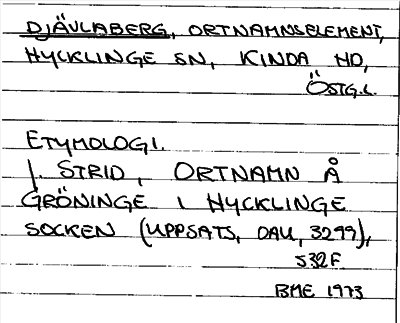 DJÄVLABERG, ORTNAMNSELEMENT,
HYCKLINGE SN, KINDA HD,
ÖSTG.L.
ETYMOLOGI.
J. STRID, ORTNAMN Å
GRÖNINGE I HYCKLINGE
SOCKEN (UPPSATS, DAU, 3299),
S32F
BME 1973